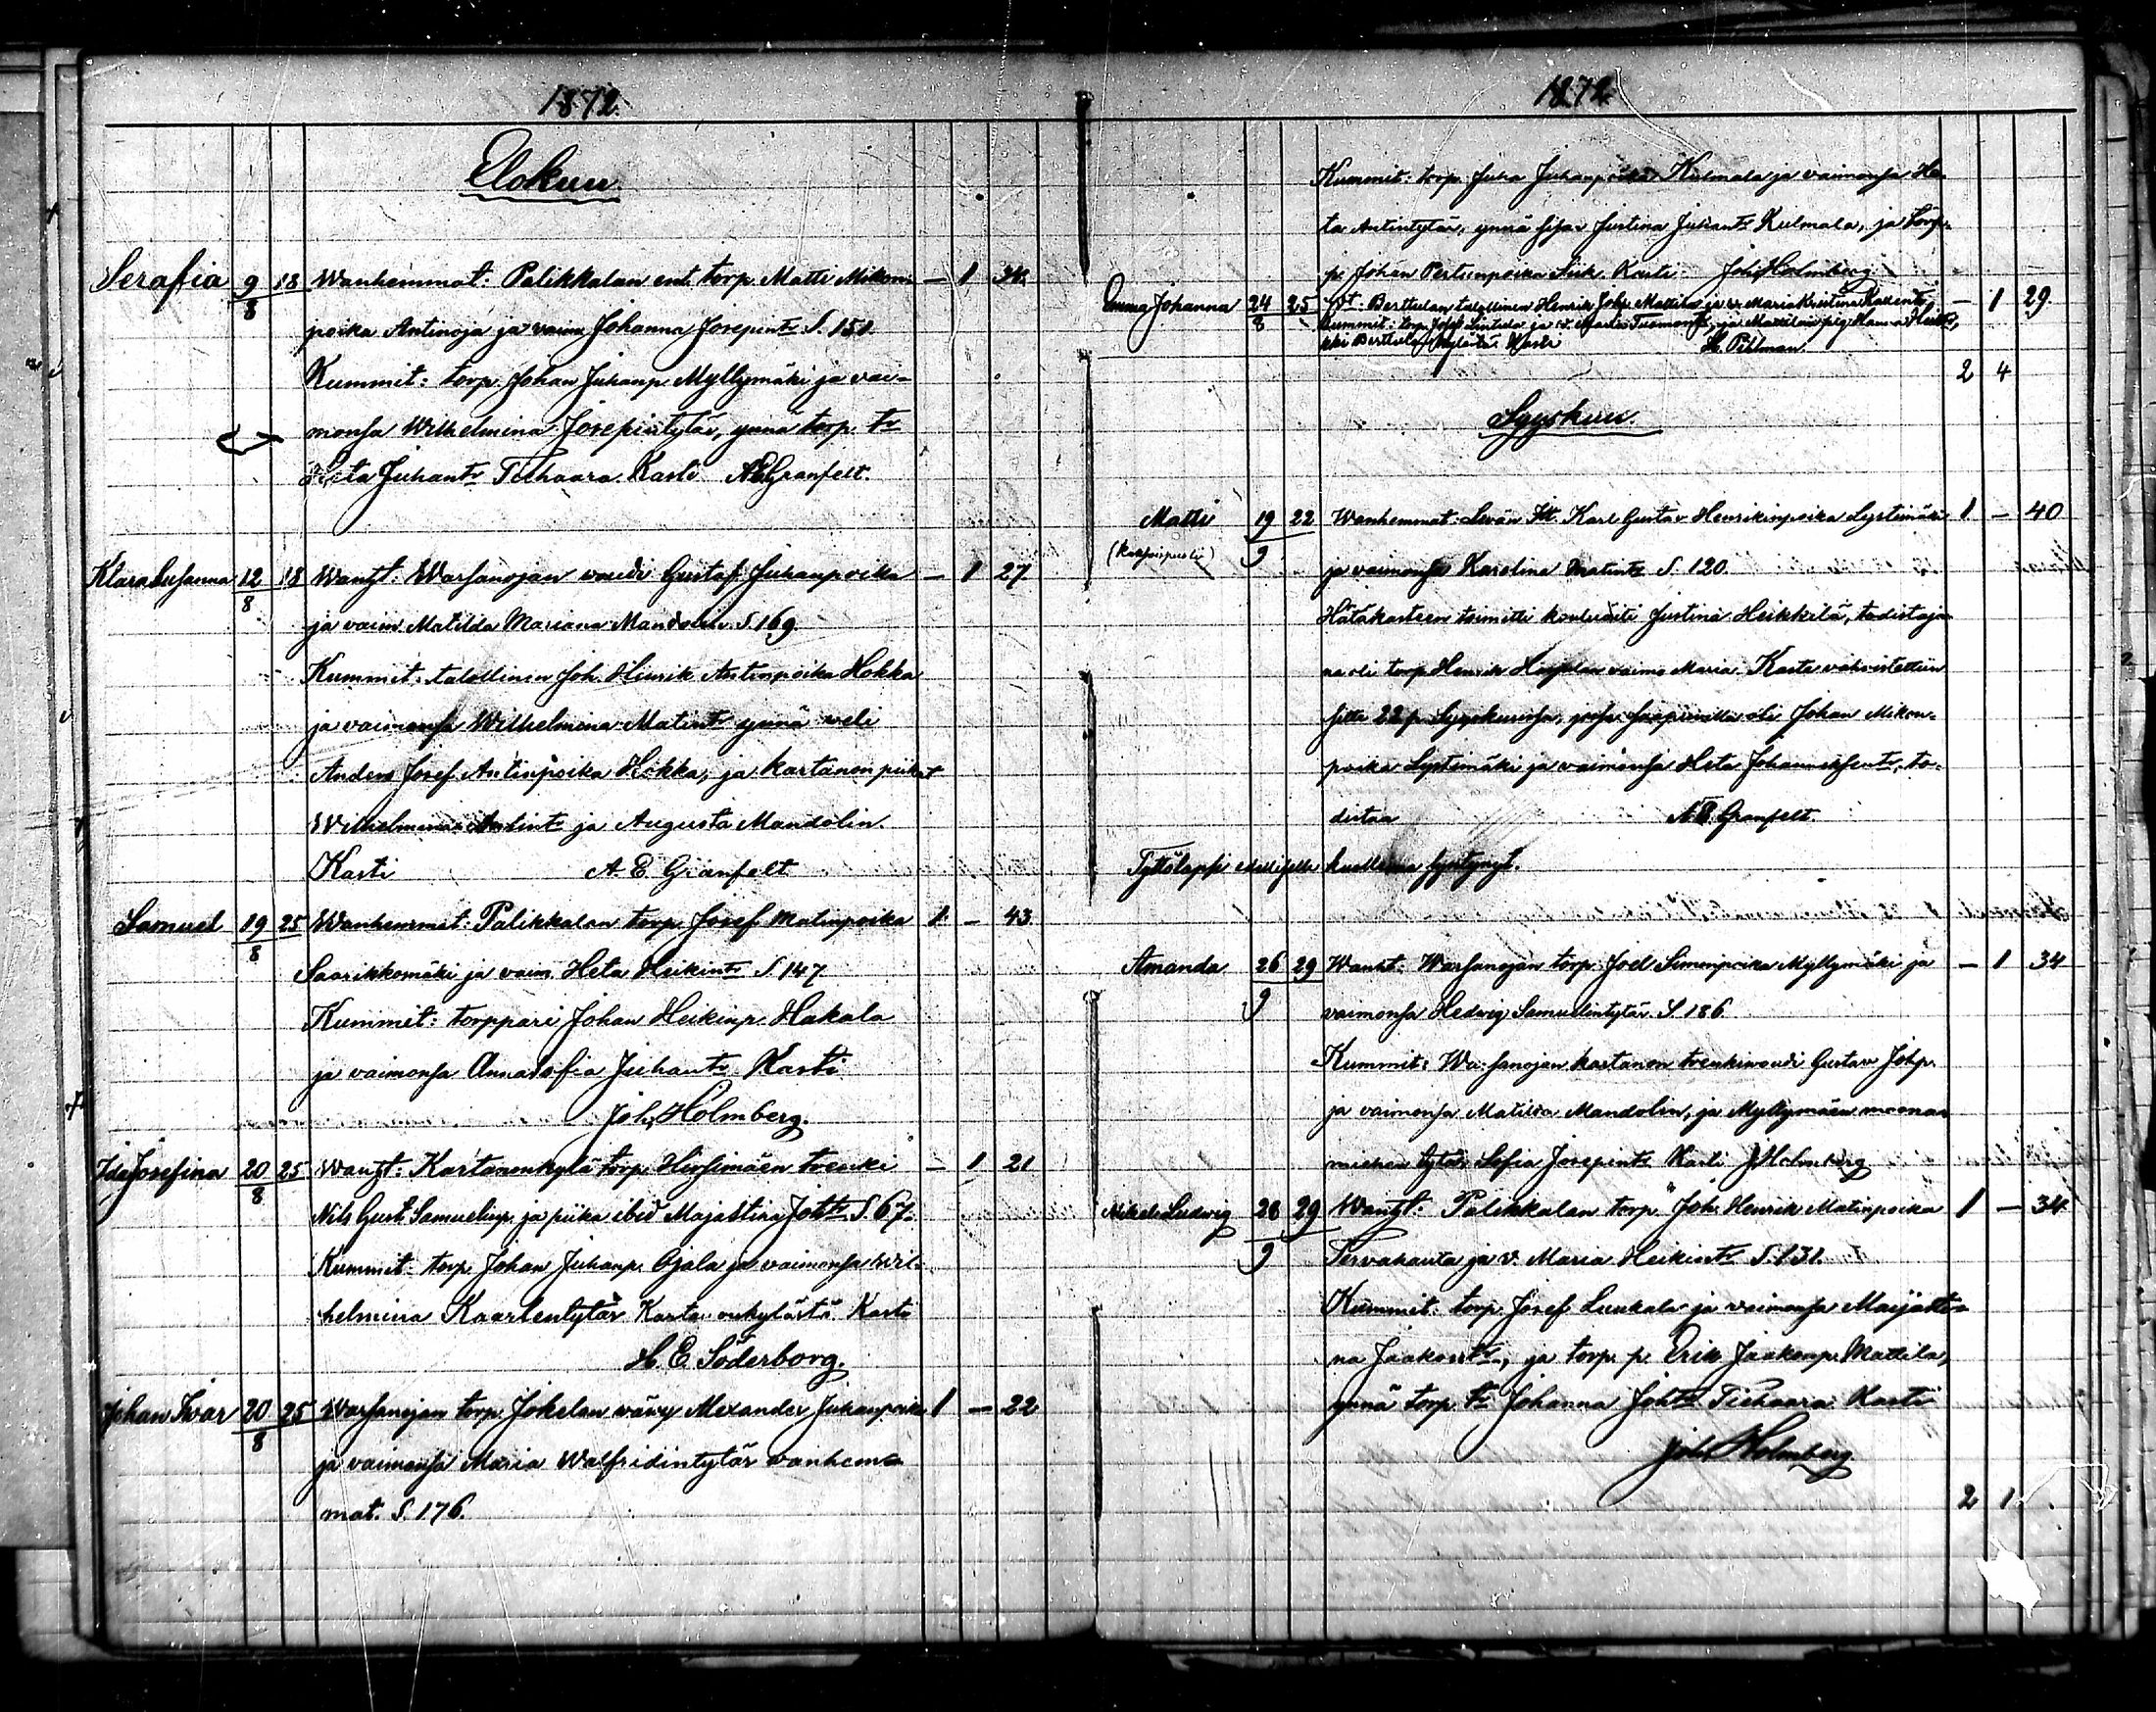 1872.
Elokuu.
Serafia 9/8 18 Wanhemmat: Palikkalan ent. torp. Matti Mikon- — 1 34.
poika Antinoja ja vaim. Johanna Josepint:r S. 151.
Kummit: torp. Johan Juhanp. Myllymäki ja vai-
monsa Wilhelmina Josepintytär, ynnä torp. t:r
Heta Juhant:r Tiehaara. Kasti AEGranfelt.
Klara Susanna 12/8 18 Wanht: Warsanojan vouti Gustaf Juhanpoika — 1 27
ja vaim. Matilda Mariana Mandolin. S. 169.
Kummit: talollinen Joh. Henrik Antinpoika Hokka
ja vaimonsa Wilhelmina Matint:r ynnä veli
Anders Josef Antinpoika Hokka, ja kartanon piikat
Wilhelmina Antint:r ja Augusta Mandolin.
Kasti A. E. Granfelt
Samuel 19/8 25 Wanhemmat: Palikkalan torp. Josef Matinpoika 1 — 43
Saarikkomäki ja vaim. Heta Heikint:r S. 147
Kummit: torppari Johan Heikinp. Hakala
ja vaimonsa Anna Sofia Juhant:r Kasti
Joh. Holmberg.
Ida Josefina 20/8 25 Wanht: Kartanonkylä torp. Hirsimäen trenki — 1 21
Nils Gust. Samuelinp. ja piika ibid Majastina Joh:t:r S. 67.
Kummit: torp. Johan Juhanp. Ojala ja vaimonsa Wil-
helmina Kaarlentytär Kartanonkylästä. Kasti
H. E. Söderborg.
Johan Iwar 20/8 25 Warsanojan torp. Jokelan vävy Alexander Juhanpoika 1 — 22
ja vaimonsa Maria Walfridintytär vanhem-
mat. S. 176.
1872
Kummit: torp. Juha Juhanpoika Kulmala ja vaimonsa He-
ta Antintytär, ynnä sisar Justina Juhant:r Kulmala, ja torp.
p. Johan Pertunpoika Kasti Joh. Holmberg
Emma Johanna 24/8 25 Wht: Berttulan talollinen Henrik Joh:p. Mattila ja v. Maria Kristina Kallent:r — 1 29.
Kummit: torp. Josef ja v. Maria Tuomont:r, ja Mattilan
kylästä. Kasti K. Pihlman
2 4
Syyskuu.
Matti 19/9 22 Wanhemmat: Levän Karl Gustav Henrikinpoika Lystimäki 1 — 40
ja vaimonsa Karolina Matint:r S. 120.
Hätäkasteen toimitti Justina Heikkilä, todistaja-
na oli torp. Henrik vaimo Maria. Kaste vahvistettiin
sitte 22 p. Syyskuussa, jossa saapuvilla oli Johan Mikon-
poika Lystimäki ja vaimonsa Heta Johanneksent:r, to-
distaa A E Granfelt.
Tyttölapsi kuolleena syntynyt.
Amanda 26/9 29 Wanht: Warsanojan torp. Joel Simonpoika Myllymäki ja — 1 34
vaimonsa Hedvig Samuelintytär. S. 186.
Kummit: Warsanojan kartanon trenkivouti Gustav Joh:p.
ja vaimonsa Matilda Mandolin, ja Myllymäen moona-
miehen tytär Sofia Josepint:r Kasti JHolmberg
Mikael Ludvig 26/9 29 Wanht: Palikkalan torp. Joh. Henrik Matinpoika 1 — 34
Tervahauta ja v. Maria Heikint:r S. 131.
Kummit: torp. Josef Luukala ja vaimonsa Maijasti-
na Jaakont:r, ja torp. p. Erik Jaakonp. Mattila,
ynnä torp. t:r Johanna Joh:t:r Tiehaara Kasti
Joh. Holmberg
2 1